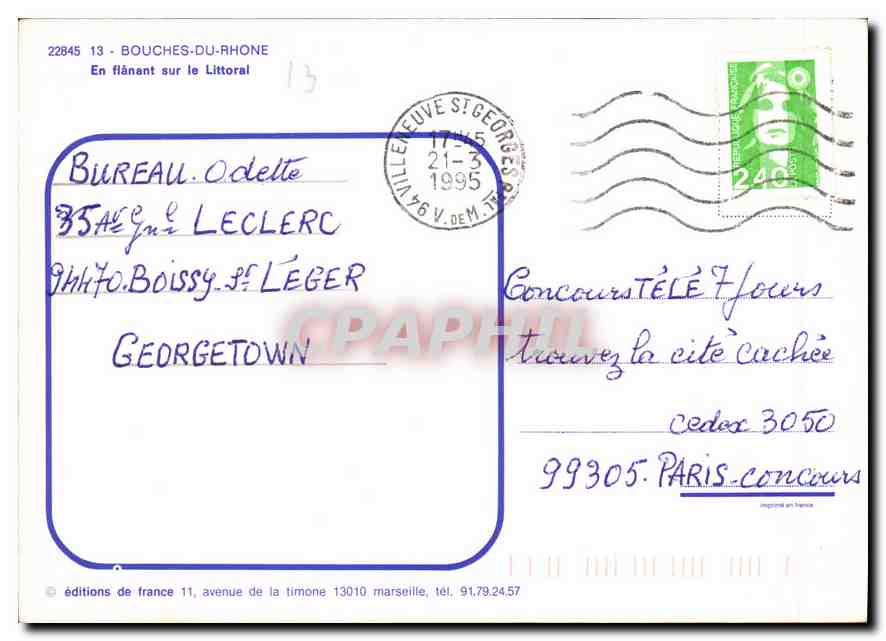 22845 13 - BOUCHES-DU-RHONE
En flânant sur le Littoral
13
94 VILLENEUVE ST GEORGES PAL V. DE M.
17H45
21-3
1995
RÉPUBLIQUE FRANÇAISE
2,40
POSTE
BUREAU. Odette
35 Av. Gnl LECLERC
94470. BOISSY. St LÉGER
GEORGETOWN
Concours TÉLÉ 7 Jours
trouvez la cité cachée
cedex 3050
99305. PARIS-concours
CPAPHIL
imprimé en france
© éditions de france 11, avenue de la timone 13010 marseille, tél. 91.79.24.57